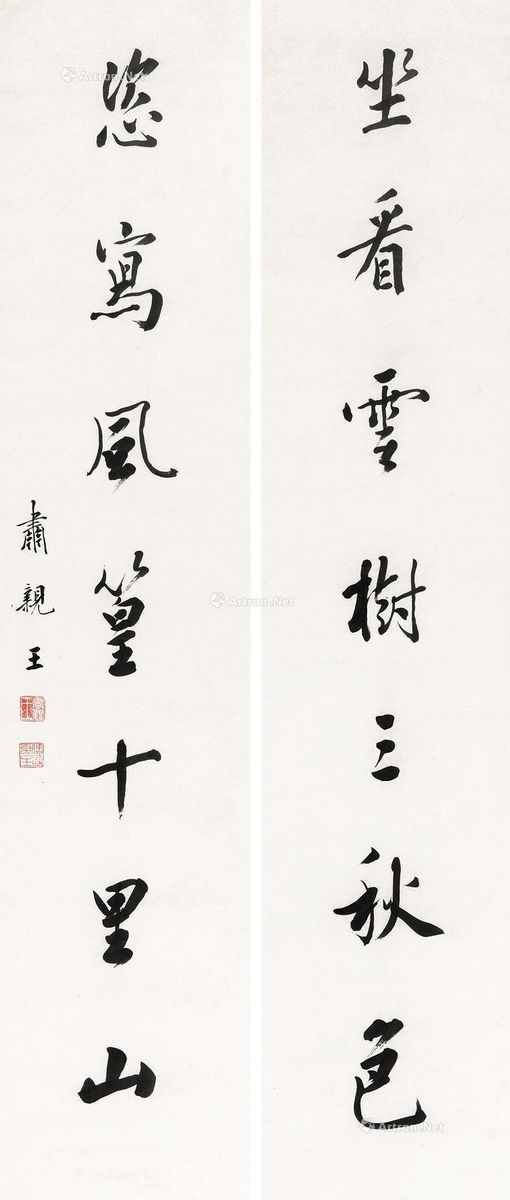 坐看雲樹三秋色
恣寫風篁十里山
肅親王
Artron.Net
Artron.Net
Artron.Net